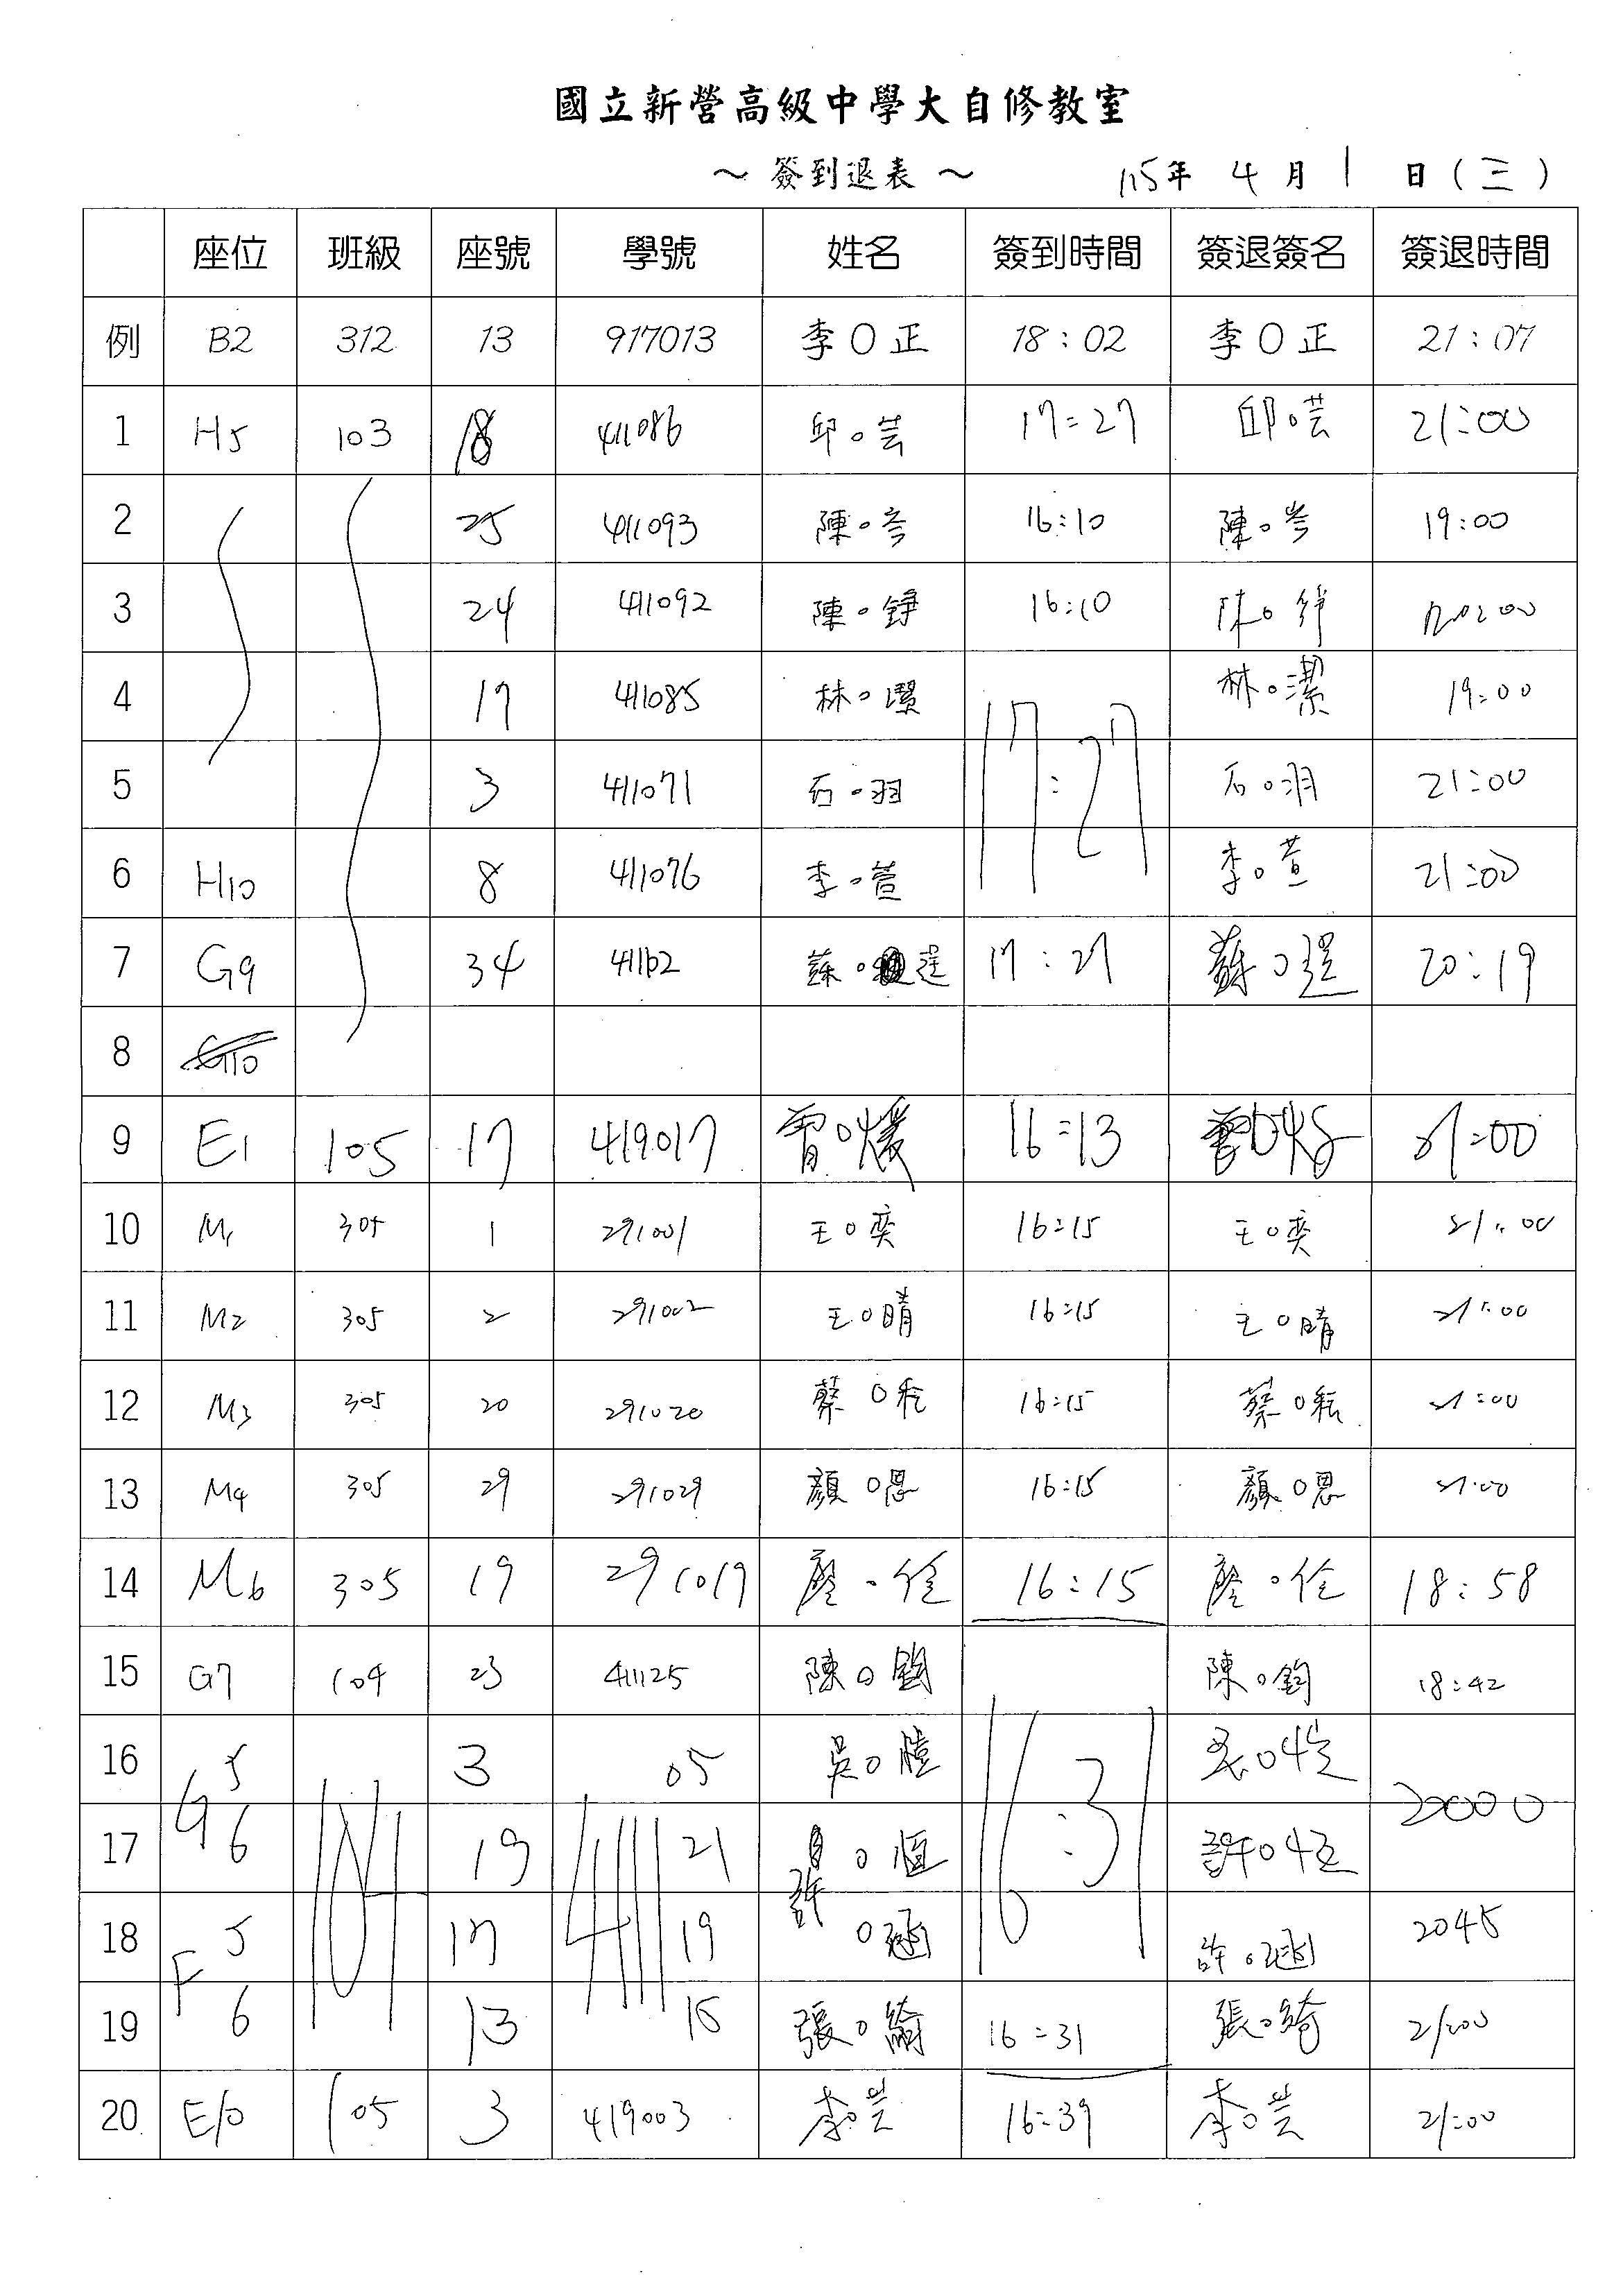 國立新營高級中學大自修教室
～簽到退表～ 115年 4月 1日(三)
座位 班級 座號 學號 姓名 簽到時間 簽退簽名 簽退時間
例 B2 312 13 917013 李○正 18:02 李○正 21:07
1 H5 103 18 411086 邱○芸 17:27 邱○芸 21:00
2 25 411093 陳○ 16:10 陳○ 19:00
3 24 411092 陳○錚 16:10 陳○ :00
4 17 411085 林○潔 林○潔 19:00
5 3 411071 石○羽 17:27 石○羽 21:00
6 H10 8 411076 李○萱 李○萱 21:00
7 G9 34 41102 蘇○ 17:27 蘇○ 20:19
8 G10
9 E1 105 17 419017 曾○媛 16:13 21:00
10 M1 305 1 291001 王○奕 16:15 王○奕 21:00
11 M2 305 2 291002 王○晴 16:15 王○晴 21:00
12 M3 305 20 291020 蔡○ 16:15 蔡○ 21:00
13 M4 305 29 291029 顏○恩 16:15 顏○恩 21:00
14 M6 305 19 291019 廖○佺 16:15 廖○佺 18:58
15 G7 104 23 411125 陳○鈞 陳○鈞 18:42
16 G5 3 05 吳○愷 吳○愷
17 6 104 19 411 21 許○恒 16:31 許○恒 2000
18 F5 17 19 ○涵 許○涵 2045
19 6 13 15 張○綺 16:31 張○綺 21:00
20 E10 105 3 419003 李○芸 16:39 李○芸 21:00